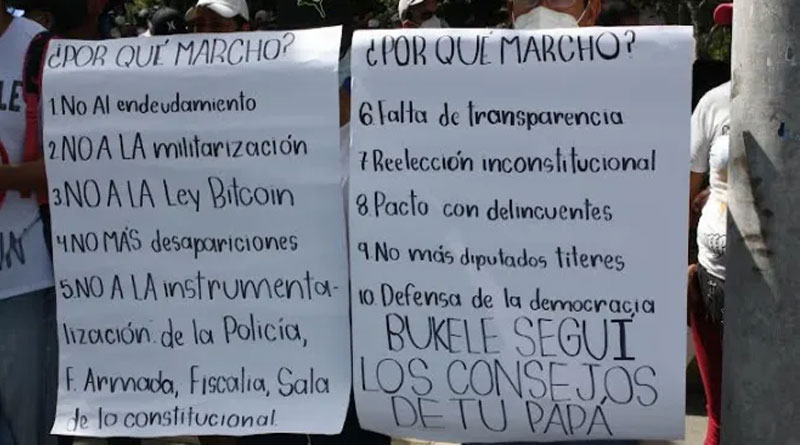 ¿POR QUÉ MARCHO?
1. No Al endeudamiento
2. NO A LA militarización
3. NO A LA Ley Bitcoin
4. NO MÁS desapariciones
5. NO A LA instrumenta-
lización de la Policía,
F. Armada, Fiscalia, Sala
de lo constitucional.
¿POR QUÉ MARCHO?
6. Falta de transparencia
7. Reelección inconstitucional
8. Pacto con delincuentes
9. No más diputados titeres
10. Defensa de la democracia
BUKELE SEGUÍ
LOS CONSEJOS
DE TU PAPÁ